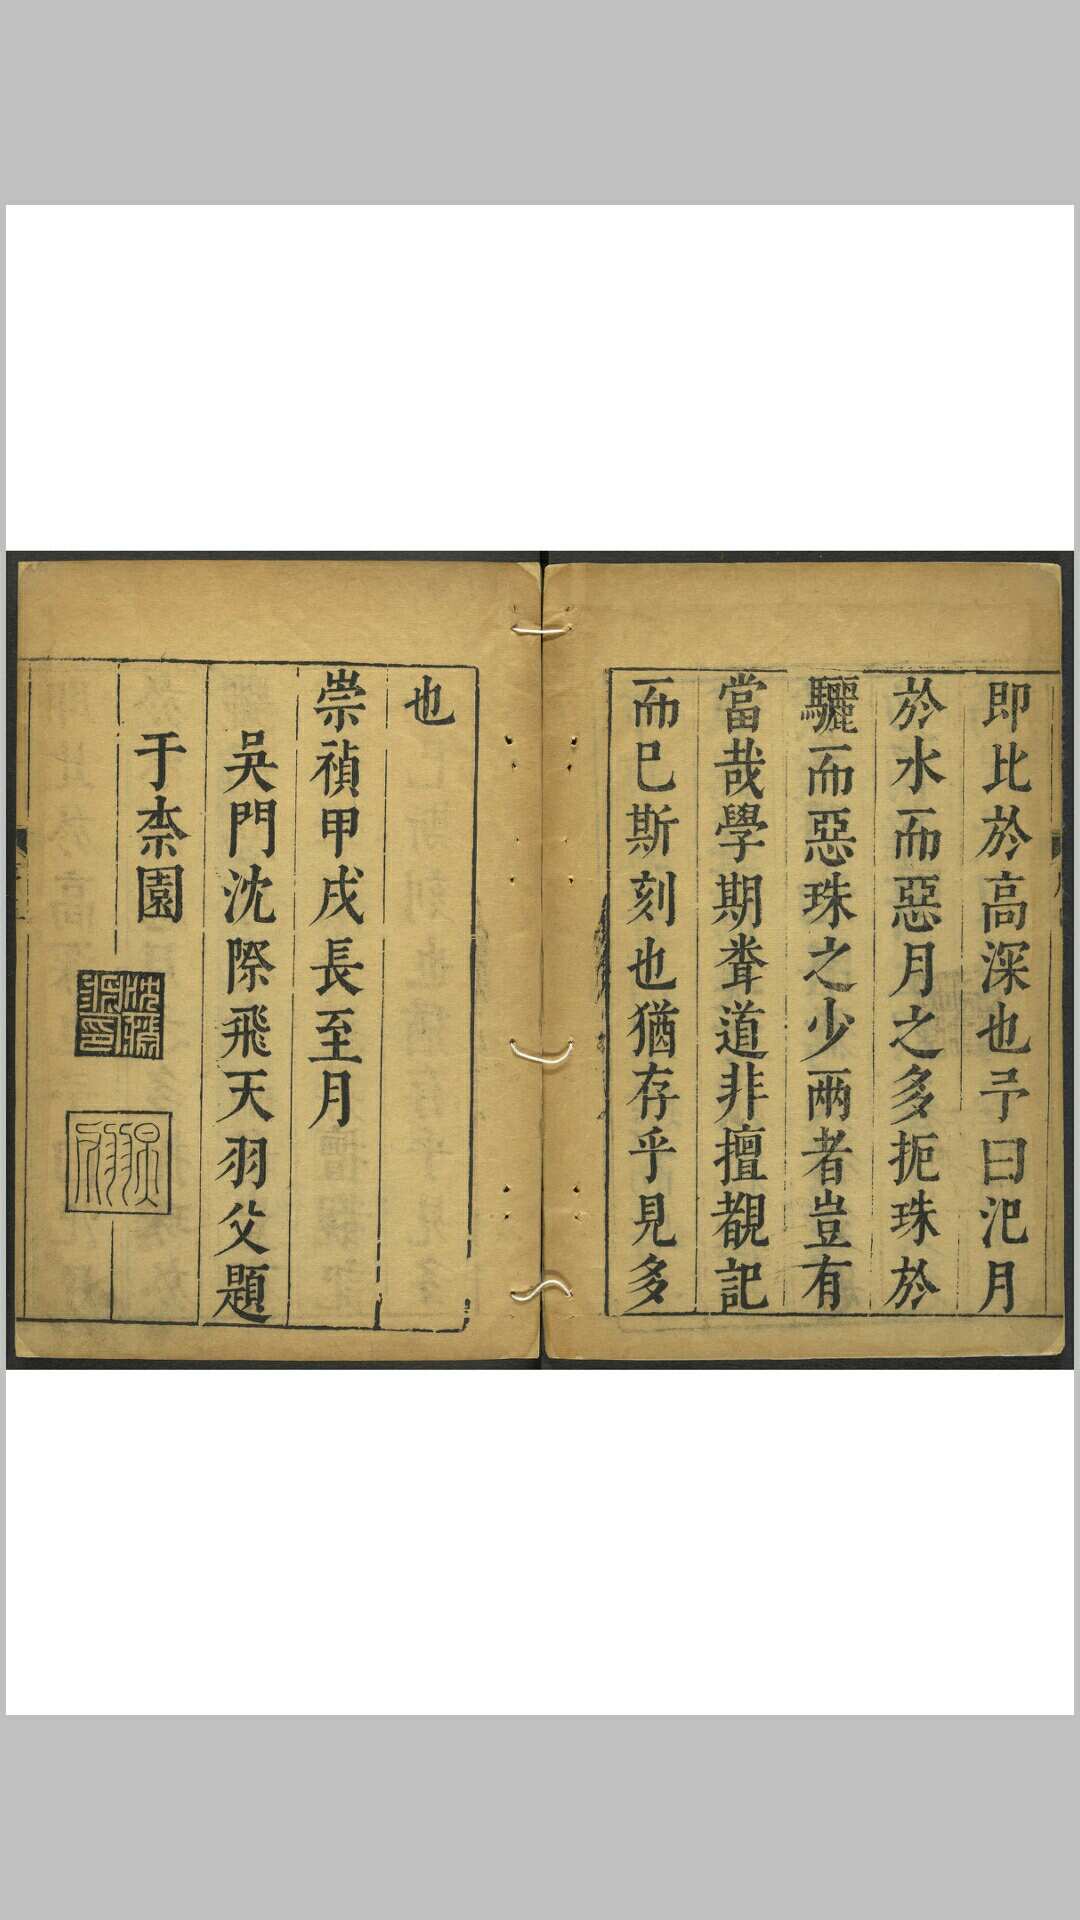 即比於高深也予曰氾月
於水而惡月之多扼珠於
驪而惡珠之少兩者豈有
當哉學期聾道非擅覩記
而已斯刻也猶存乎見多
也
崇禎甲戌長至月
吳門沈際飛天羽父題
于柰園
沈際飛印
天羽氏